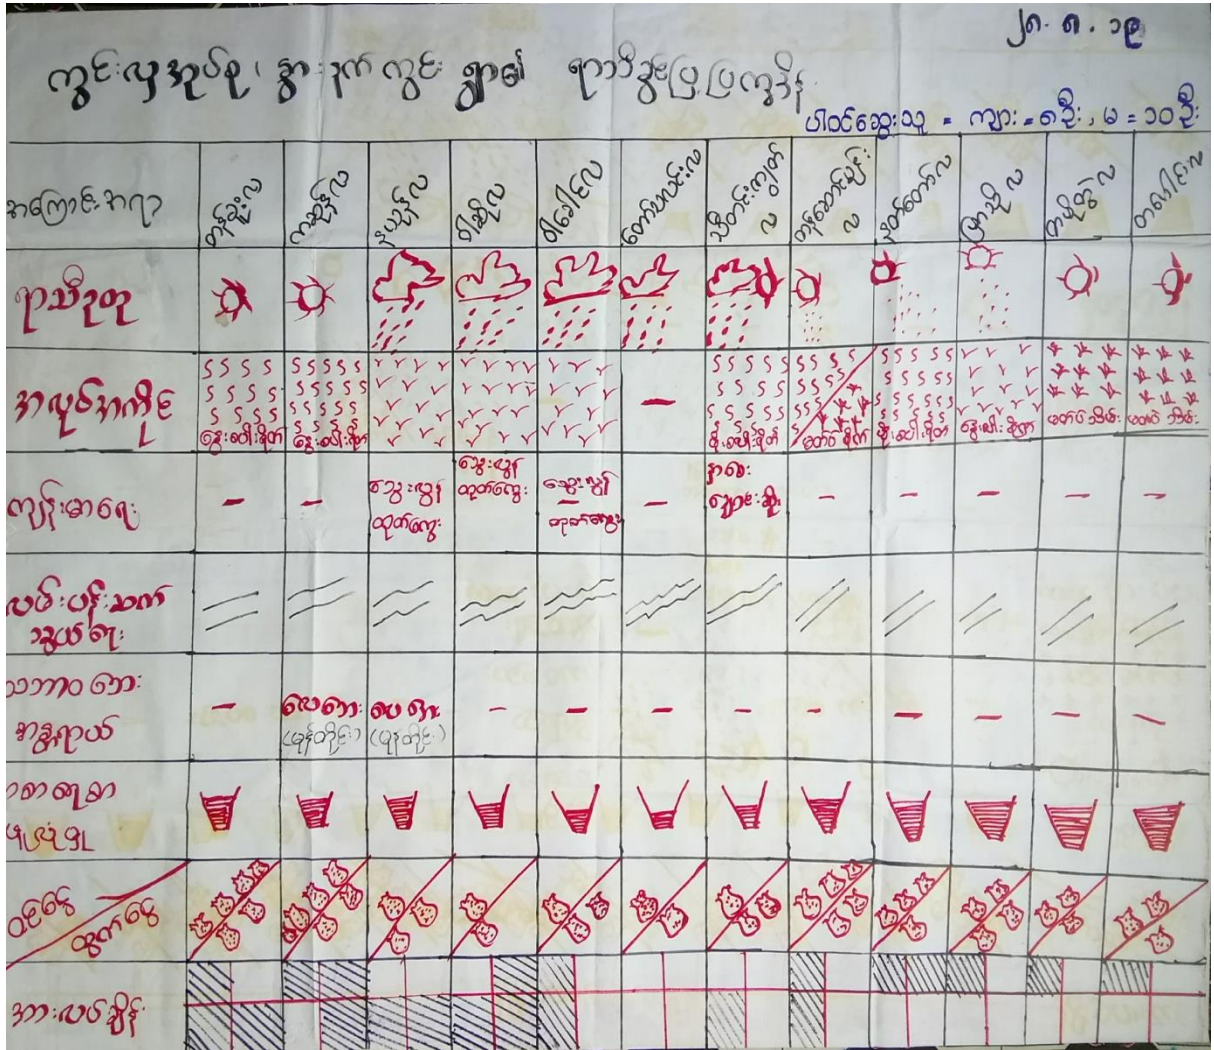 ၂၈.၈.၁၉
ကွင်းလှအုပ်စု၊ နွားနက်ကွင်း ရွာ၏ ရာသီခွင်ပြ ပြက္ခဒိန်
ပါဝင်ဆွေးသူ = ကျား = ၈ဦး, မ = ၁၀ဦး
အကြောင်းအရာ
တန်ခူးလ
ကဆုန်လ
နယုန်လ
ဝါဆိုလ
ဝါခေါင်လ
တော်သလင်းလ
သီတင်းကျွတ်လ
တန်ဆောင်မုန်းလ
နတ်တော်လ
ပြာသိုလ
တပို့တွဲလ
တပေါင်းလ
ရာသီဥတု
အလုပ်အကိုင်
နွေစပါးစိုက်
နွေစပါးစိုက်
မိုးစပါးရိတ်
မတ်ပဲ စိုက်
မိုးစပါးရိတ်
နွေစပါးစိုက်
မတ်ပဲသိမ်း
မတ်ပဲ သိမ်း
ကျန်းမာရေး
သွေးလွန်
တုတ်ကွေး
သွေးလွန်
တုတ်ကွေး
သွေးလွန်
တုတ်ကွေး
ဖျား
ချောင်းဆိုး
လမ်းပန်းဆက်
သွယ်ရေး
သဘာဝဘေး
အန္တရာယ်
လေဘေး
(မုန်တိုင်း)
လေဘေး
(မုန်တိုင်း)
စားရေစာ
ဖူလုံမှု
ဝင်ငွေ
ထွက်ငွေ
အားလပ်ချိန်